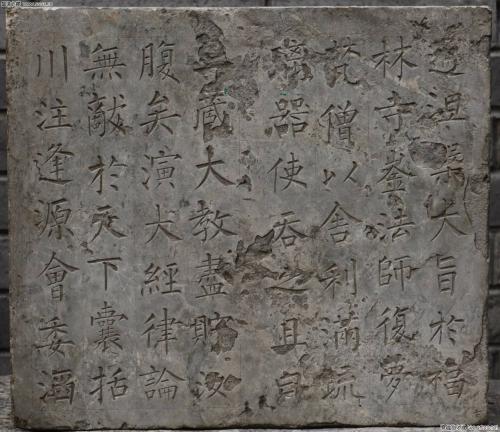 通涅槃大旨於福
林寺崟法師復夢
梵僧以舍利滿琉
璃器使吞之且曰
三藏大教盡貯汝
腹矣演大經律論
無敵於天下囊括
川注逢源會委滔